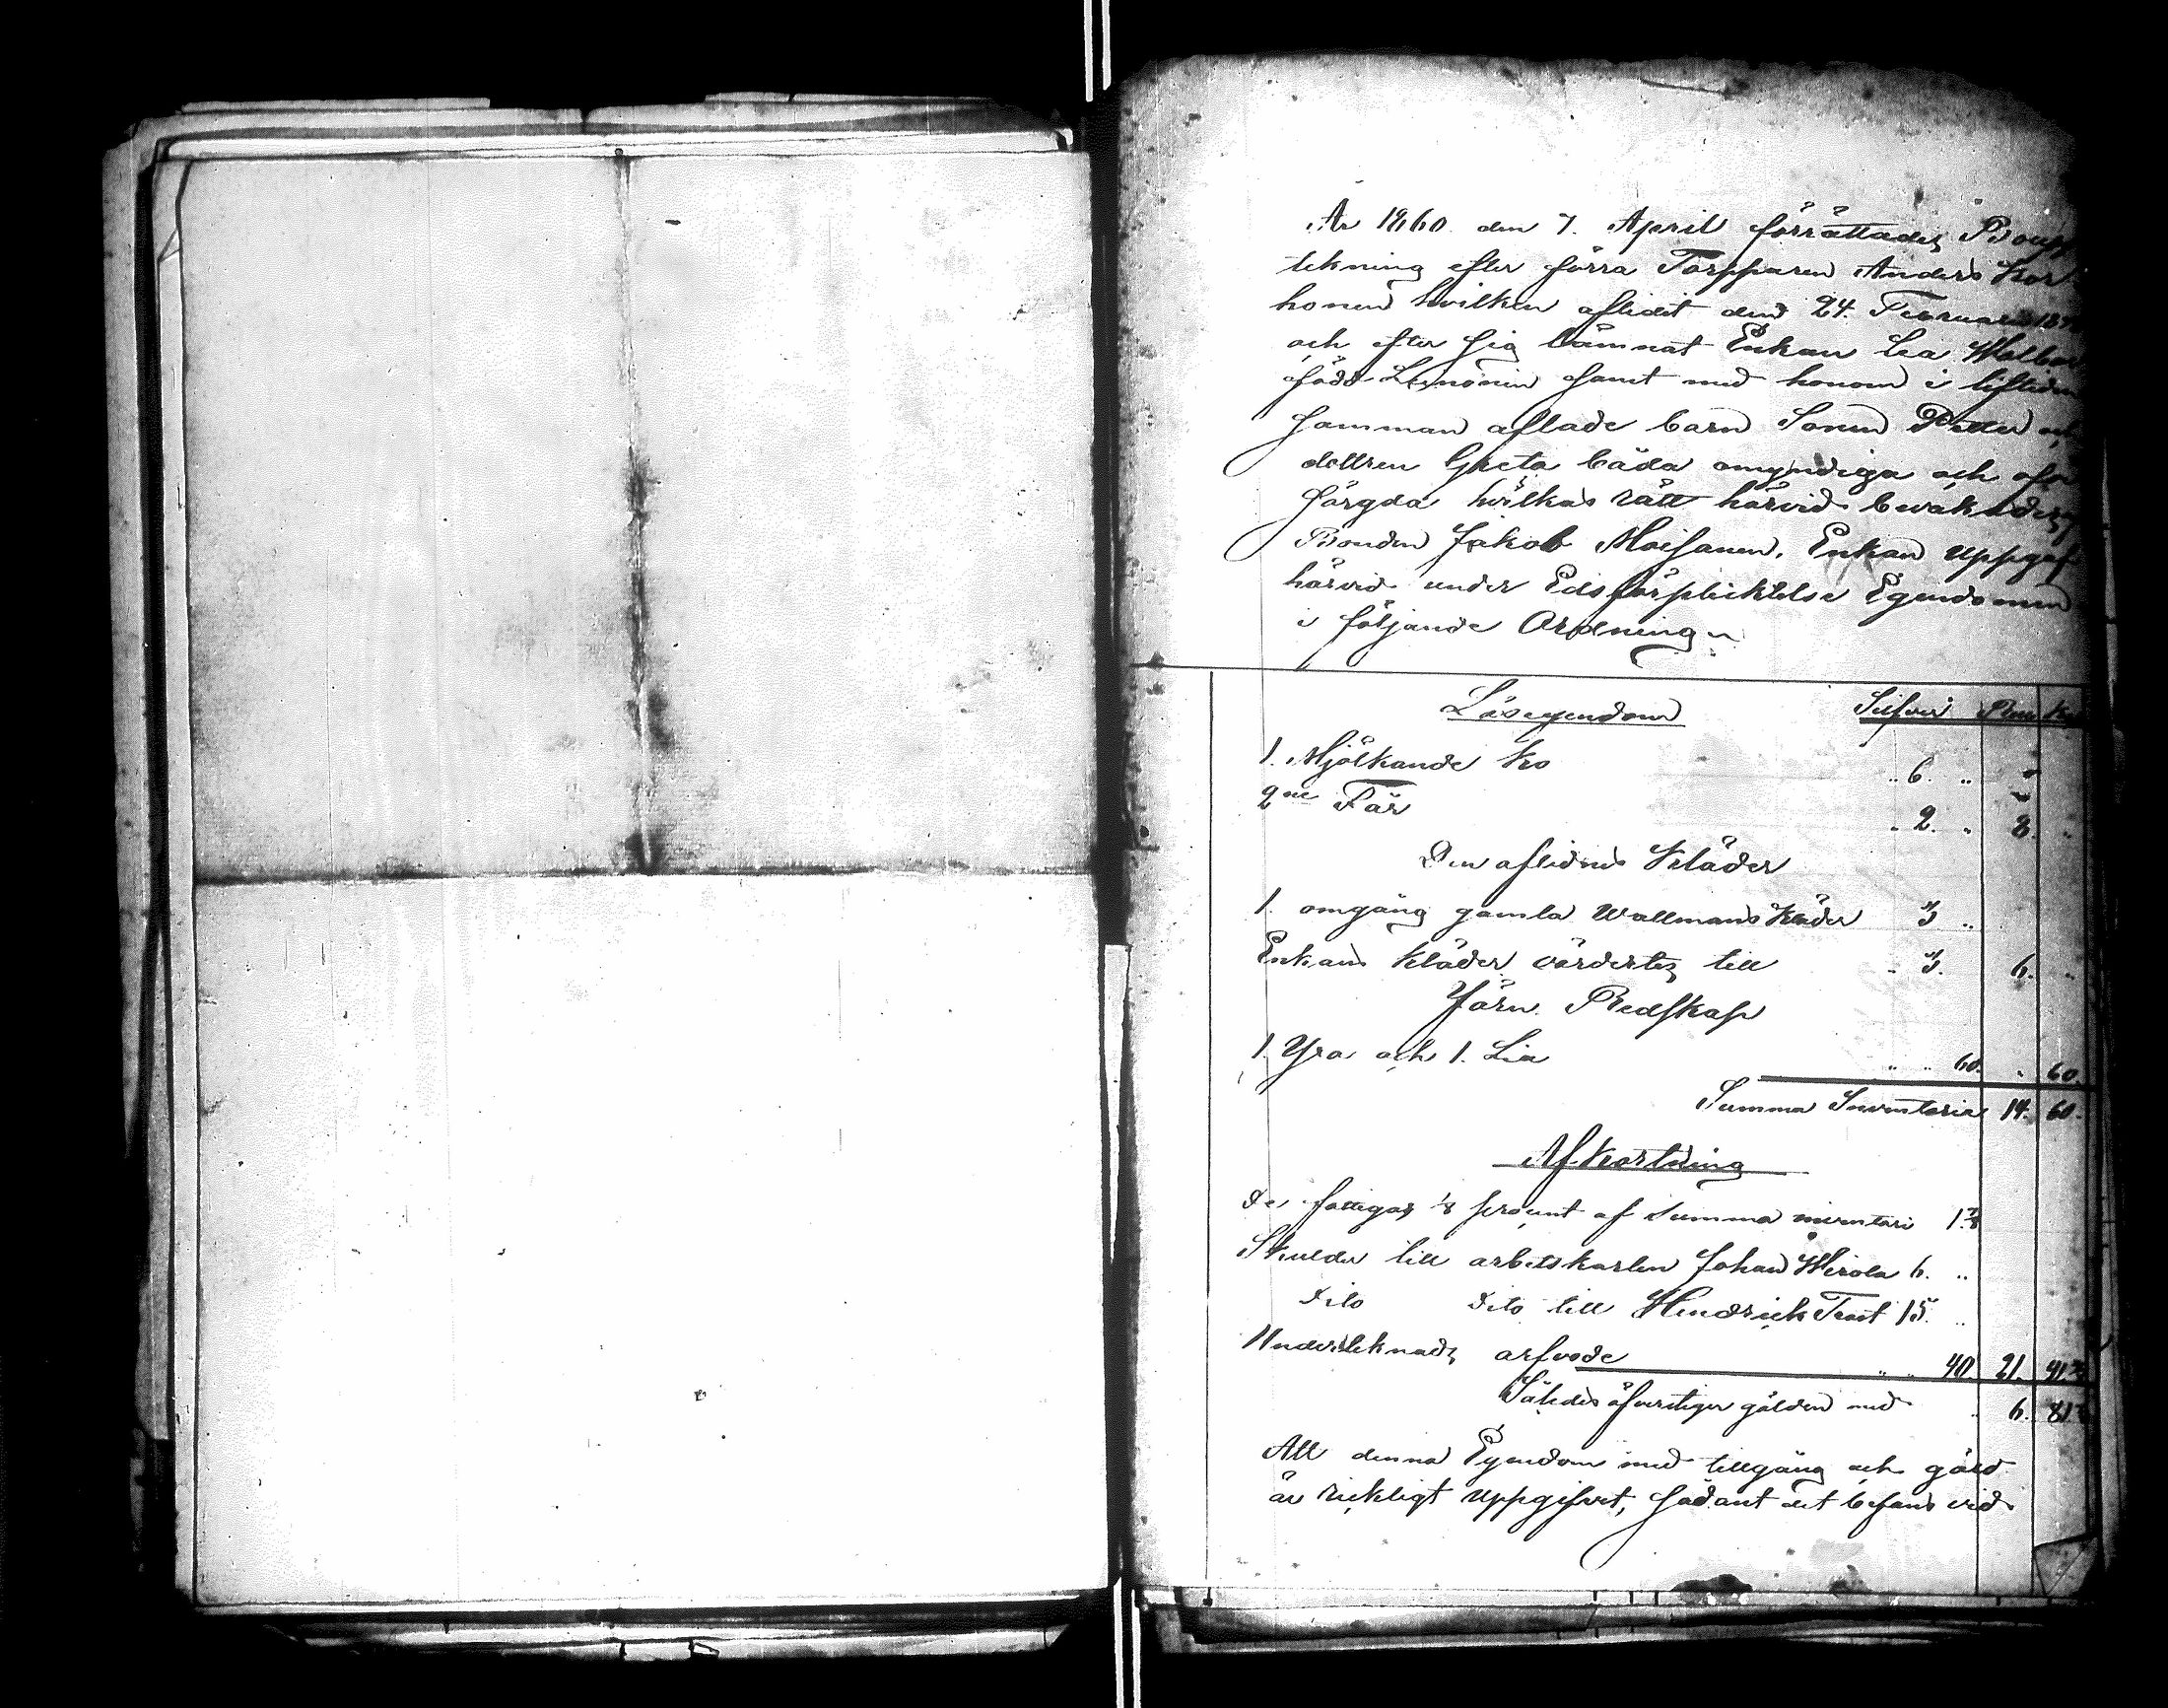 År 1860 den 7. April förrättades Boupp
tekning efter förra Torpparen Anders Kor
honen hvilken aflidit den 24. Februari
och efter sig lämnat Enkan Lea
född samt med honom i liftiden
samman aflade barn Sonen Petter och
dottren Greta båda omyndiga och oför
sörgda hvilkas rätt härvid bevakades
Bonden Jakob Moisanen. Enkan uppgaf
härvid under Edsförplicktelse Egendomen
i följande Ordning
Lösegendom Silfver Rub. K.
1. Mjölkande Ko " 6. " "
2ne Får " 2. " 8. "
Den aflidnes Kläder
1. omgång gamla Wallmans Kläder 3 "
Enkans Kläder värdertes till " 3. 6. "
Järn Redskap
1. Yxa och 1. Lia " " 60. " 60.
Summa Inventarie 14. 60.
Afkortning
De fattigas 1/8 procent af Summa inventari
Skulder till arbetskarlen Johan Hirola 6. "
Dito Dito till Hendrick Trast 15. "
Underteknads arfvode " " 40 21. 41
Således öfverstiger gälden med " 6. 81
All denna Egendom med tillgång och gäld
är ricktigt uppgifvet, sådant det befans vid